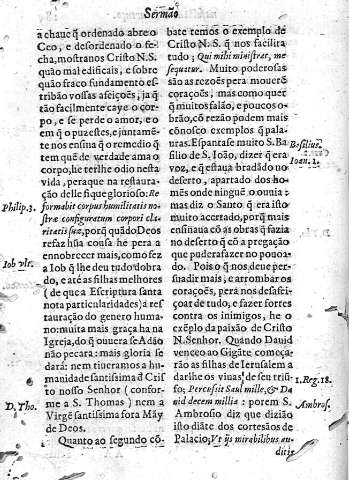 Sermão
a chaue q̃ ordenado abre o
Ceo, e desordenado o fe-
cha, mostranos Cristo N.S.
quão mal edificais, e sobre
quão fraco fundamento es-
tribão vossas afeições, ja q̃
tão facilmente caye o cor-
po, e se perde o amor, e o
em q̃ o puzestes, e juntamẽ-
te nos ensina q̃ o remedio q̃
tem quẽ de verdade ama o
corpo, he terlhe odio nesta
vida, pera que na restaura-
ção delle fique glorioso: Re-
Philip. 3.
formabit corpus humilitatis no-
stræ configuratum corpori cla-
ritatis suæ, porq̃ quãdo Deos
refaz hũa cousa hé pera a
ennobrecer mais, como fez
Iob vlt.
a Iob q̃ lhe deu tudo dobra-
do, e até as filhas melhores
(de que a Escriptura santa
nota particularidades) a res-
tauração do genero huma-
no: muita mais graça ha na
Igreja, do q̃ ouuera se Adão
não pecara: mais gloria se
dará: nem tiueramos a hu-
manidade santissima d Cris
to nosso Senhor (confor-
D. Tho.
me a S. Thomas) nem a
Virgẽ santissima fora Mãy
de Deos.
Quanto ao segundo cõ-
bate temos o exemplo de
Cristo N. S. q̃ nos facilita
tudo; Qui mihi ministrat, me
sequatur. Muito poderosas
são as rezoes pera mouerẽ
corações, mas como quer
q̃ muitos falão, e poucos o-
brão, cõ rezão podem mais
cõnosco exemplos q̃ pala-
uras. Espantase muito S. Ba
Basilius.
silio de S. Ioão, dizer q̃ era
Ioan. 1.
voz, e q̃ estaua bradãdo no
deserto, apartado dos ho-
mẽs onde ninguẽ o ouuia:
mas diz o Santo q̃ era isto
muito acertado, porq̃ mais
ensinaua cõ as obras q̃ fazia
no deserto q̃ cõ a pregação
que pudera fazer no pouoa-
do. Pois o q̃ nos deue per-
suadir mais, e arrombar os
corações, pera nos desafei-
çoar de tudo, e fazer fortes
contra os inimigos, he o
exẽplo da paixão de Cristo
N. Senhor. Quando Dauid
venceo ao Gigãte começa-
rão as filhas de Ierusalem a
darlhe os viuas de seu triũ-
fo; Percussit Saul mille, & Da
1. Reg. 18.
uid decem millia: porem S.
Ambros.
Ambrosio diz que dizião
isto diãte dos cortesãos de
Palacio; Vt ijs mirabilibus au-
ditis